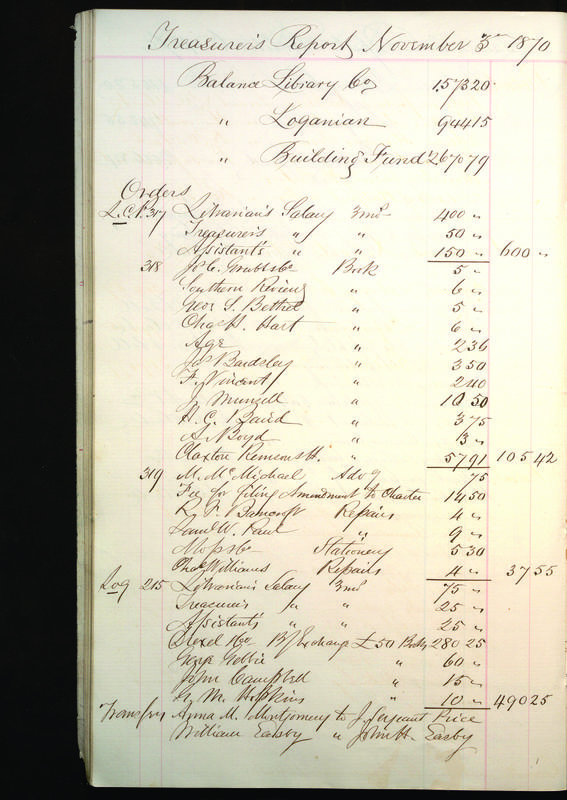 Treasurer's Report November 3d 1870
Balance Library Co 1573 20
" Loganian 944 15
" Building Fund 2670 79
Orders
L.C.P. 317 Librarian's Salary 3 mos 400 "
Treasurer's " " 50 "
Assistant's " " 150 " 600 "
318 Book 5 "
Southern Review " 6 "
Geo. S. Bethel " 5 "
Chas H. Hart " 6 "
Age " 2 36
Jas Bardsley " 3 50
F. Vincent " 2 40
J Munsell " 10 50
H. C. Baird " 3 75
A Boyd " 3 "
Claxton Remsen & H. " 57 91 105 42
319 M. McMichael Advg 75
Fee for filing Amendment to Charter 14 50
R. F. Bancroft Repairs 4 "
Saml W. Paul " 9 "
Moss & Co Stationery 5 30
Chas Williams Repairs 4 " 37 55
Log 215 Librarian's Salary 3 mos 75 "
Treasurer's " " 25 "
Assistant's " " 25 "
Drexel & Co B/Exchange £50 Books 280 25
George Gebbie " 60 "
John Campbell " 15 "
G. M. Hopkins " 10 " 490 25
Transfers Anna M. Montgomery to J. Sergeant Price
William Easby " John H. Easby